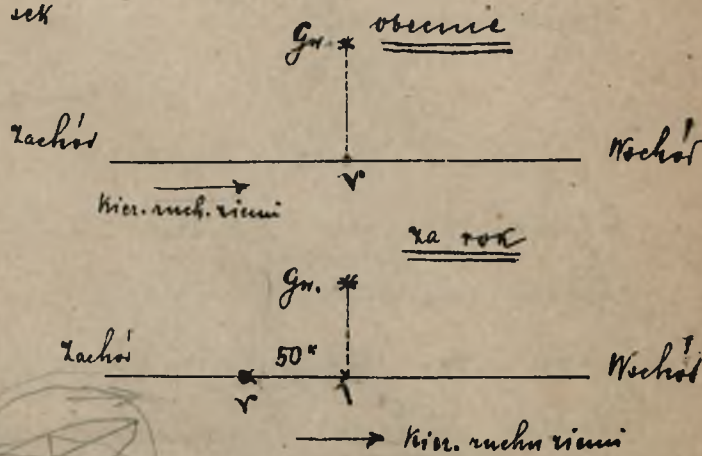 sek
Gw. obecnie
Zachód Wschód
♈
Kier. ruch. ziemi
za rok
Gw.
Zachód 50" Wschód
♈
Kier. ruchu ziemi